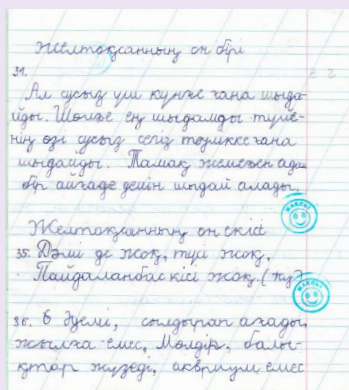 Желтоқсанның он бірі
31.
Ал сусыз үш күнге ғана шыда-
йды. Шөлде ең шыдамды түйе-
нің өзі сусыз сегіз тәулікке ғана
шыдайды. Тамақ жемеген адам
бір айға дейін шыдай алады.
Желтоқсанның он екісі
35. Дәмі де жоқ, түсі жоқ,
Пайдаланбас кісі жоқ. (су)
36. Әдемі, сылдырап ағады,
жылға емес, Мөлдір, балы-
қтар жүзеді, аквриум емес